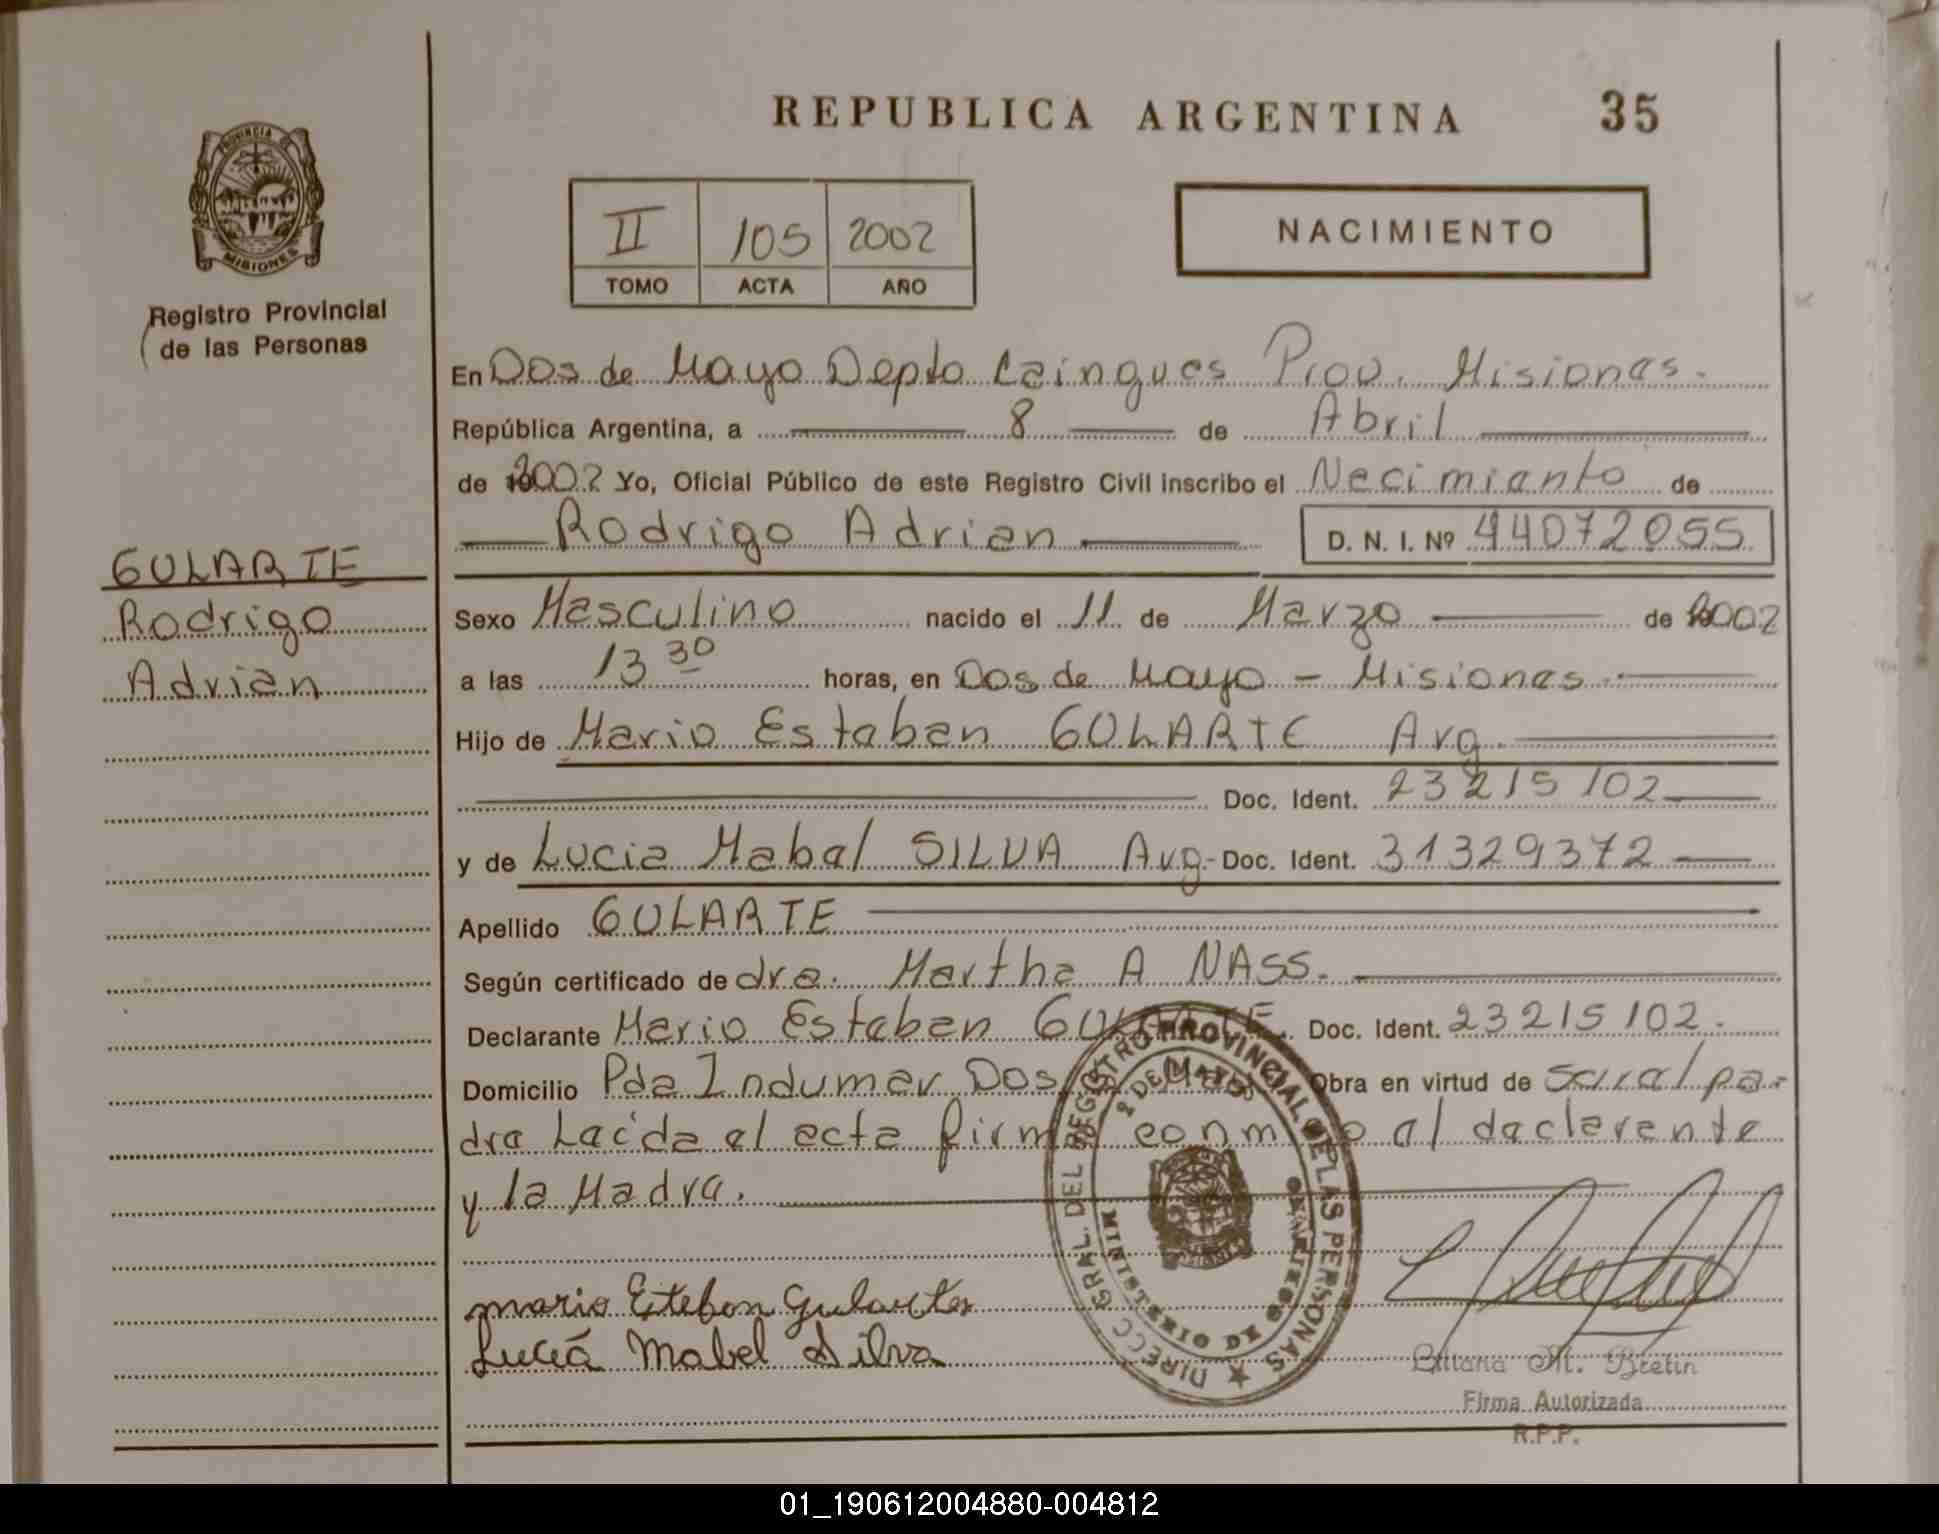 REPUBLICA ARGENTINA 35
PROVINCIA DE
MISIONES
Registro Provincial
de las Personas
II 105 2002
TOMO ACTA AÑO
NACIMIENTO
En Dos de Mayo Depto Cainguas Prov. Misiones.
República Argentina, a 8 de Abril
de 2002 Yo, Oficial Público de este Registro Civil inscribo el Nacimiento de
Rodrigo Adrian D. N. I. Nº 44072055
GULARTE
Rodrigo
Adrian
Sexo Masculino nacido el 11 de Marzo de 2002
a las 13 30 horas, en Dos de Mayo - Misiones
Hijo de Mario Esteban GULARTE Arg.
Doc. Ident. 23 215 102
y de Lucia Mabel SILVA Arg- Doc. Ident. 31329372
Apellido GULARTE
Según certificado de dra. Martha A NASS.
Declarante Mario Esteban GULARTE Doc. Ident. 23 215 102.
Domicilio Pda Indumar Dos de Mayo Obra en virtud de ser el pa-
dre Leída el acta firm conmigo el declarante
y la Madre.
mario Esteban Gularte
Lucía Mabel Silva
DIRECC GRAL. DEL REGISTRO PROVINCIAL DE LAS PERSONAS
2 DE MAYO
MINISTERIO DE GOBIERNO
Liliana M. Bretin
Firma Autorizada
R.P.P.
01_190612004880-004812